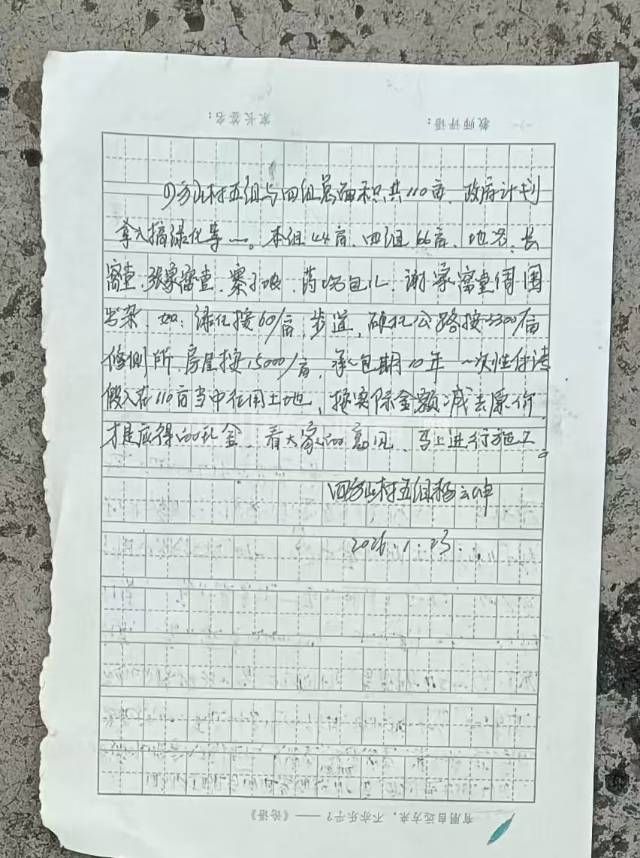 教师评语：
家长签名：
四方山村五组与四组总面积共110亩，政府计划
拿入搞绿化等一。本组44亩，四组66亩，地名，长
窝堂，张家窝堂，寨子坡，药场包儿，谢家窝堂周围
如，绿化按60/亩，步道，硬化公路按3300/亩
修厕所，房屋按15000/亩，承包期10年一次性付清
假入在110亩当中征用土地，按实际金额减去原价
才是应得的租金，看大家的意见，马上进行施工。
四方山村五组
2026.1.23.
有朋自远方来，不亦乐乎？——《论语》